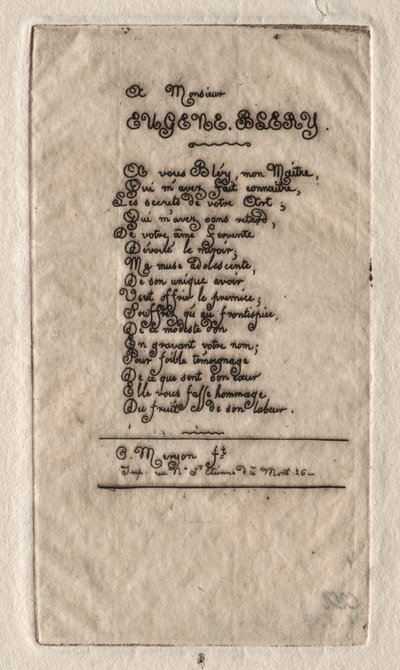 A Monsieur
EUGENE. BLERY.
A vous Bléry, mon Maître,
Qui m'avez fait connaître,
Les secrets de votre Art;
Qui m'avez sans retard,
De votre âme fervente
Dévoilé le miroir;
Ma muse adolescente,
De son unique avoir
Veut offrir le premice;
Souffrez qu'au frontispice,
De ce modeste don
En gravant votre nom;
Pour foible témoignage
De ce que sent son cœur
Elle vous fasse hommage
Du fruit de son labeur.
C. Meryon ft
Imp. rue Nve St Etienne du Mont 26